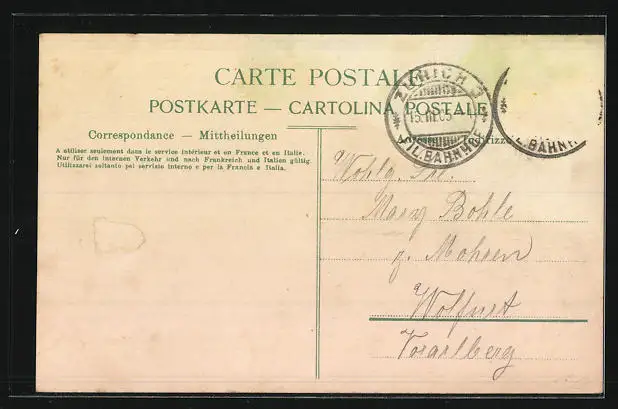 CARTE POSTALE
POSTKARTE — CARTOLINA POSTALE
Correspondance — Mittheilungen
A utiliser seulement dans le service intérieur et en France et en Italie.
Nur für den internen Verkehr und nach Frankreich und Italien gültig.
Utilizzarsi soltanto pel servizio interno e per la Francia e Italia.
ZÜRICH
15.III.05
FIL. BAHNH.
L. BAHNH.
Wohlg. Frl.
Bohle
z. Mohren
Wolfurt
Vorarlberg